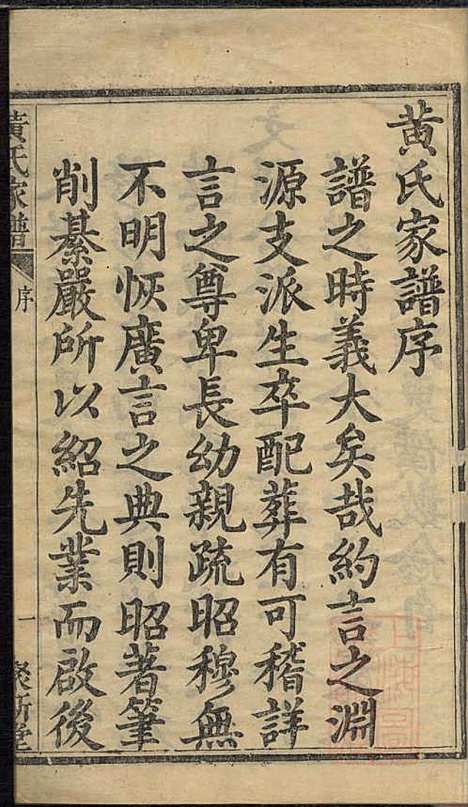 黃氏家譜序
譜之時義大矣哉約言之淵
源支派生卒配葬有可稽詳
言之尊卑長幼親疏昭穆無
不明恢廣言之典則昭著筆
削綦嚴所以紹先業而啟後
黃氏家譜
序
一